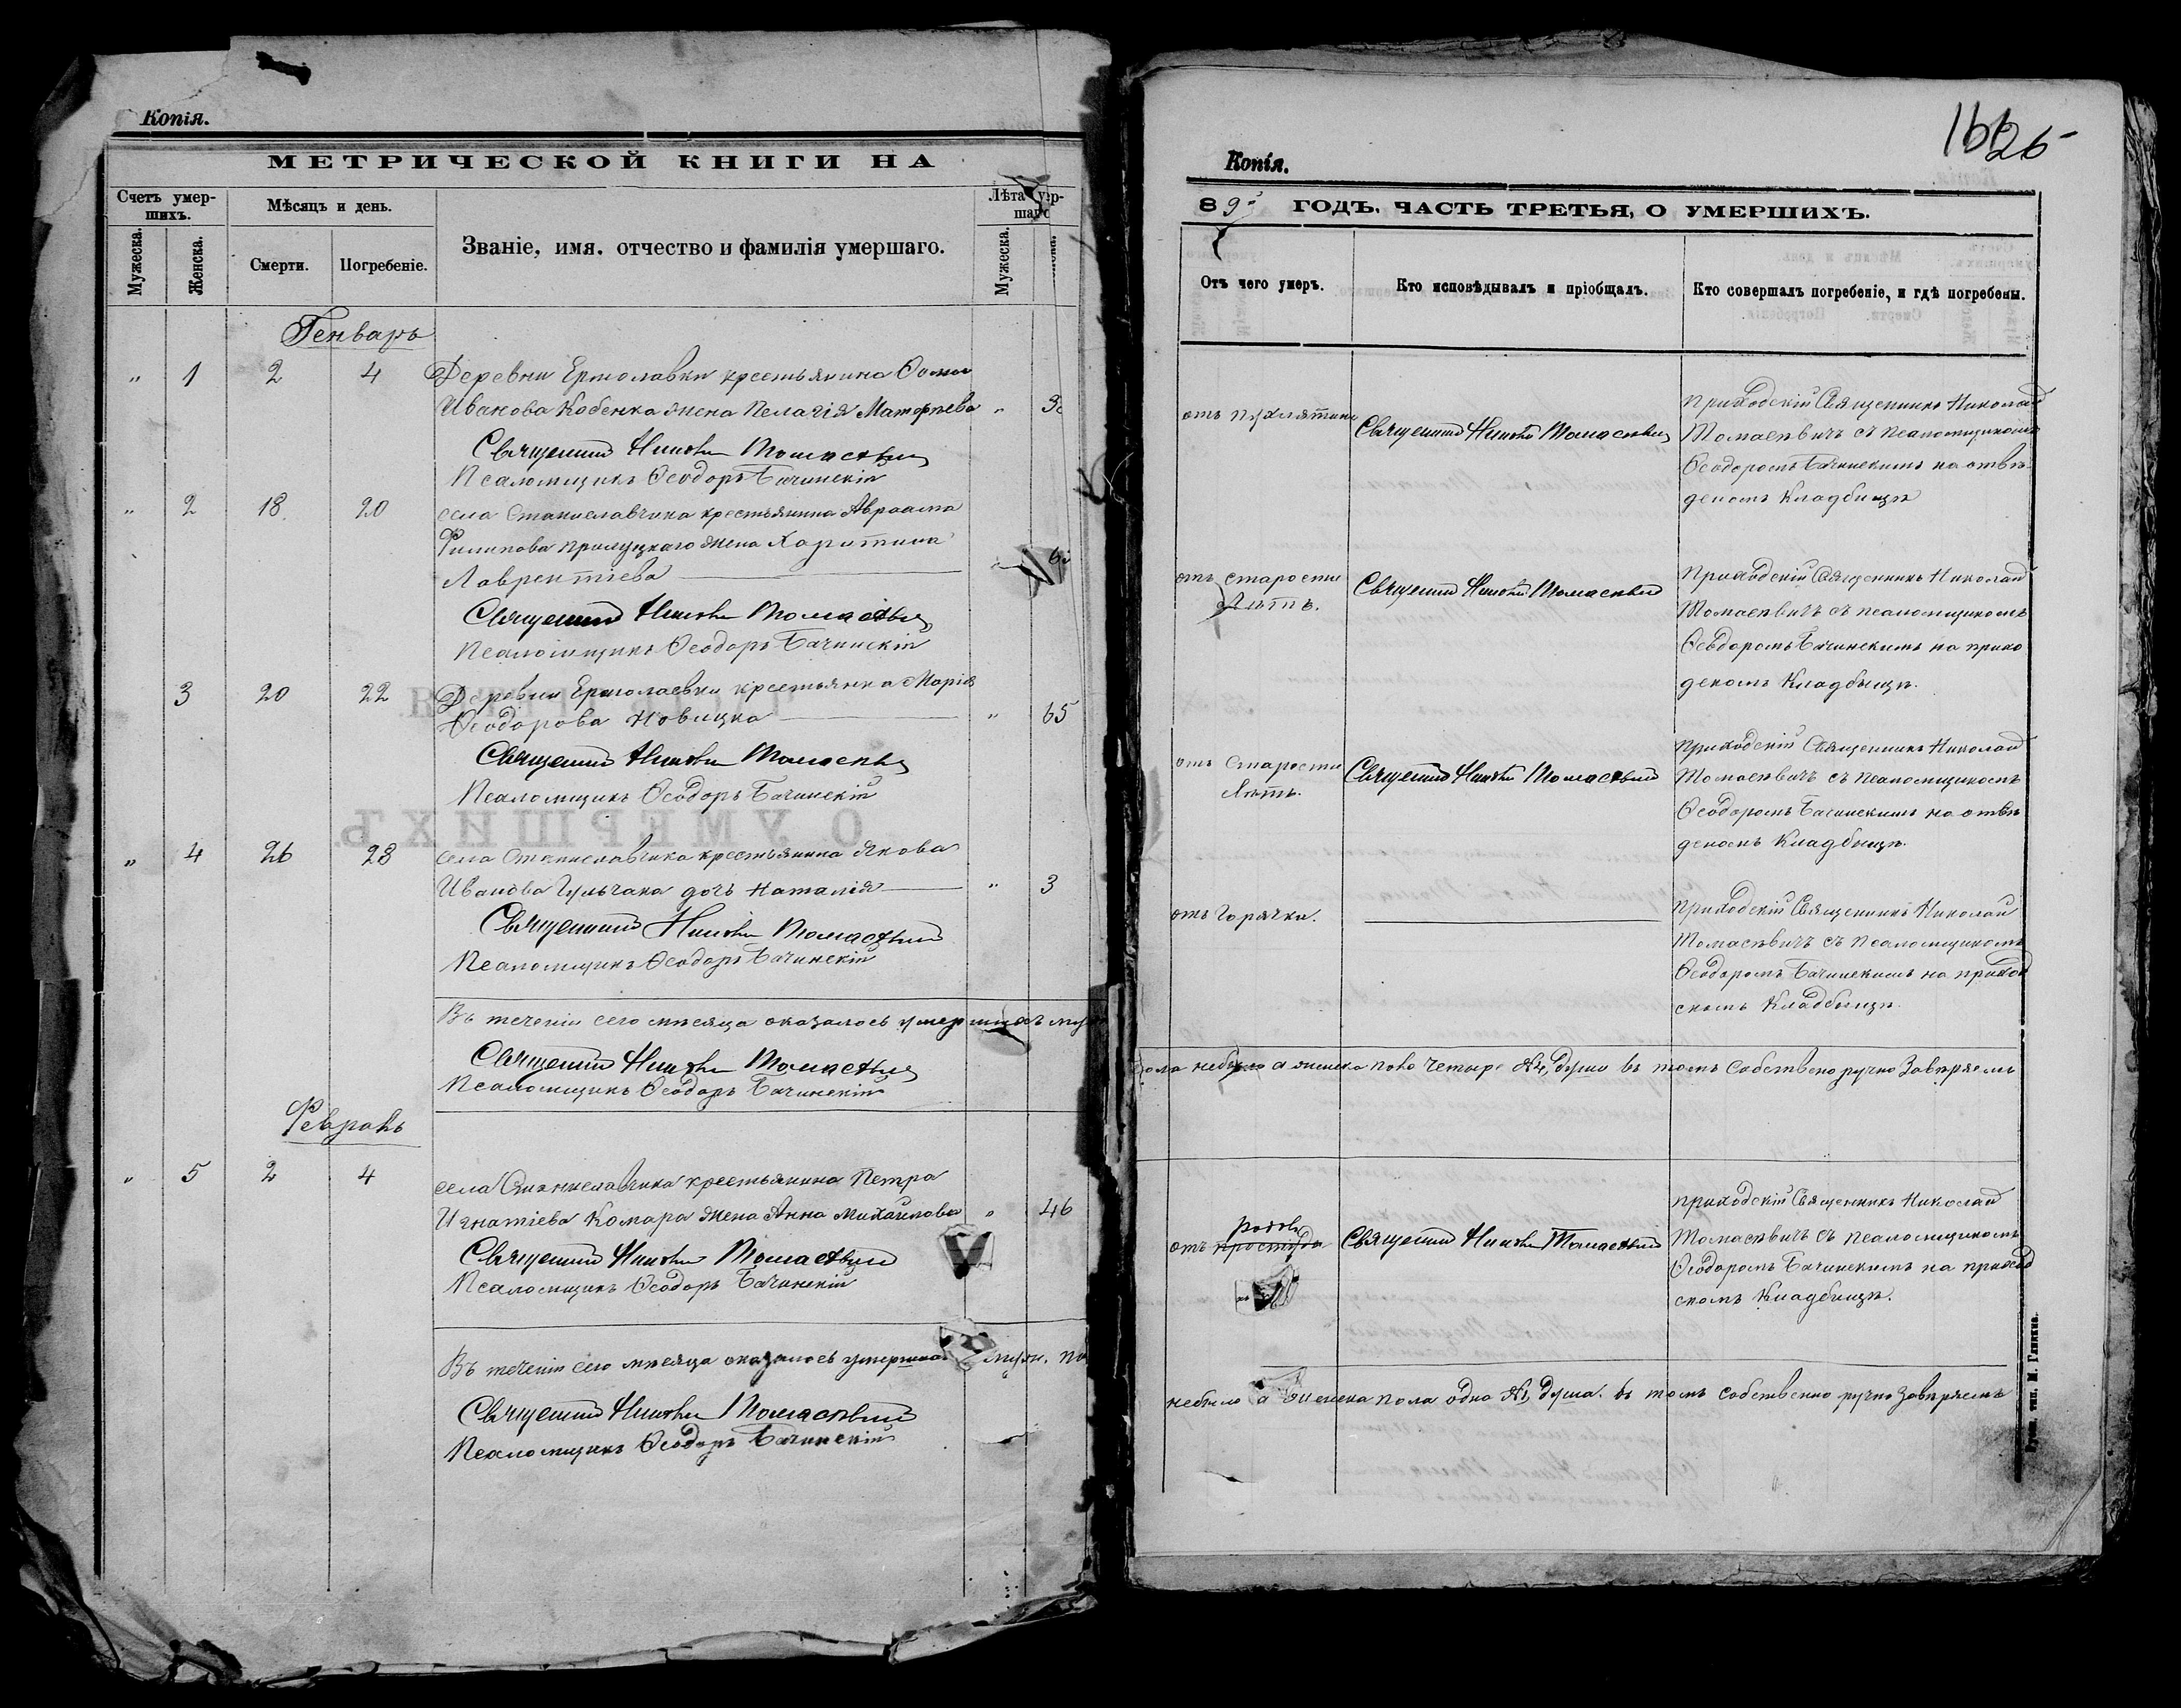 Копія.
МЕТРИЧЕСКОЙ КНИГИ НА
Счетъ умер-
шихъ.
Мѣсяцъ и день.
Званіе, имя, отчество и фамилія умершаго.
Лѣта
Мужеска.
Женска.
Смерти.
Погребеніе.
Мужеска.
Генварь
" 1 2 4 Деревни Ермолавки крестьянина Ѳомы
Иванова Кобенка жена Пелагія Матфѣева "
Священникъ Николай Томасевичъ
Псаломщикъ Ѳеодоръ Бачинскій
" 2 18 20 села Станиславчика крестьянина Авраама
Филипова Прилуцкаго жена Харитина
Лаврентіева
Священникъ Николай Томасевичъ
Псаломщикъ Ѳеодоръ Бачинскій
3 20 22 Деревни Ермолаевки крестьянка Марія
Ѳеодорова Новицка " 65
Священникъ Николай Томасевичъ
Псаломщикъ Ѳеодоръ Бачинскій
" 4 26 28 села Станиславчика крестьянина Якова
Иванова Гульчака дочь Наталія " 3
Священникъ Николай Томасевичъ
Псаломщикъ Ѳеодоръ Бачинскій
Въ теченіи сего мѣсяца оказалось умершихъ
Священникъ Николай Томасевичъ
Псаломщикъ Ѳеодоръ Бачинскій
Февраль
" 5 2 4 села Станиславчика крестьянина Петра
Игнатіева Комара жена Анна Михайлова " 46
Священникъ Николай Томасевичъ
Псаломщикъ Ѳеодоръ Бачинскій
Въ теченіи сего мѣсяца оказалось умерших муж. по
Священникъ Николай Томасевичъ
Псаломщикъ Ѳеодоръ Бачинскій
Копія.
89 ГОДЪ, ЧАСТЬ ТРЕТЬЯ, О УМЕРШИХЪ.
Отъ чего умеръ.
Кто исповѣдывалъ и пріобщалъ.
Кто совершалъ погребеніе, и гдѣ погребены.
отъ
Священникъ Николай Томасевичъ
приходскій Священникъ Николай
Томасевичъ съ псаломщикомъ
Ѳеодоромъ Бачинскимъ на отвѣ
деномъ Кладбищѣ
отъ старости
лѣтъ.
Священникъ Николай Томасевичъ
приходскій Священникъ Николай
Томасевичъ съ псаломщикомъ
Ѳеодоромъ Бачинскимъ на прихо
дскомъ Кладбищѣ.
отъ старости
лѣтъ.
Священникъ Николай Томасевичъ
приходскій Священникъ Николай
Томасевичъ съ псаломщикомъ
Ѳеодоромъ Бачинскимъ на отвѣ
деномъ Кладбищѣ.
отъ горячки.
приходскій Священникъ Николай
Томасевичъ съ псаломщикомъ
Ѳеодоромъ Бачинскимъ на приход
скомъ Кладбищѣ.
пола небыло а женска пово четыре №4, душы въ томъ собственоручно завѣряемъ
родовъ
отъ простуды
Священникъ Николай Томасевичъ
приходскій Священникъ Николай
Томасевичъ съ псаломщикомъ
Ѳеодоромъ Бачинскимъ на приход
скомъ Кладбищѣ.
небыло а женска пола одна №1, душа. въ томъ собственно ручно завѣряемъ